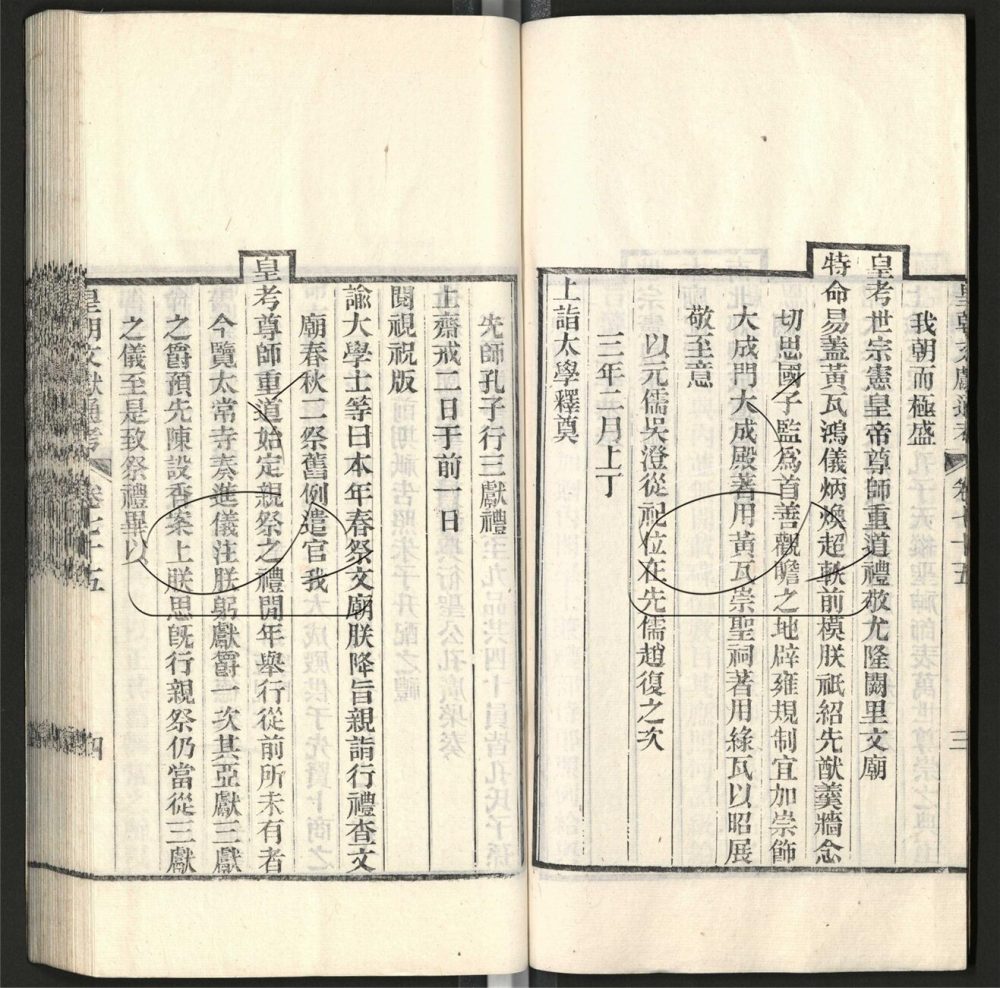 皇朝文獻通考 卷七十五 三
我朝而極盛
皇考世宗憲皇帝尊師重道禮敬尤隆闕里文廟
特命易蓋黃瓦鴻儀炳煥超軼前模朕祇紹先猷羹牆念
切思國子監為首善觀瞻之地辟雍規制宜加崇飾
大成門大成殿著用黃瓦崇聖祠著用綠瓦以昭展
敬至意
以元儒吳澄從祀位在先儒趙復之次
三年二月上丁
上詣太學釋奠
先師孔子行三獻禮
上齋戒二日于前一日
閱視祝版
諭大學士等曰本年春祭文廟朕降旨親詣行禮查文
廟春秋二祭舊例遣官我
皇考尊師重道始定親祭之禮閒年舉行從前所未有者
今覽太常寺奏進儀注朕躬獻爵一次其亞獻三獻
之爵預先陳設香案上朕思既行親祭仍當從三獻
之儀至是致祭禮畢以
皇朝文獻通考 卷七十五 四